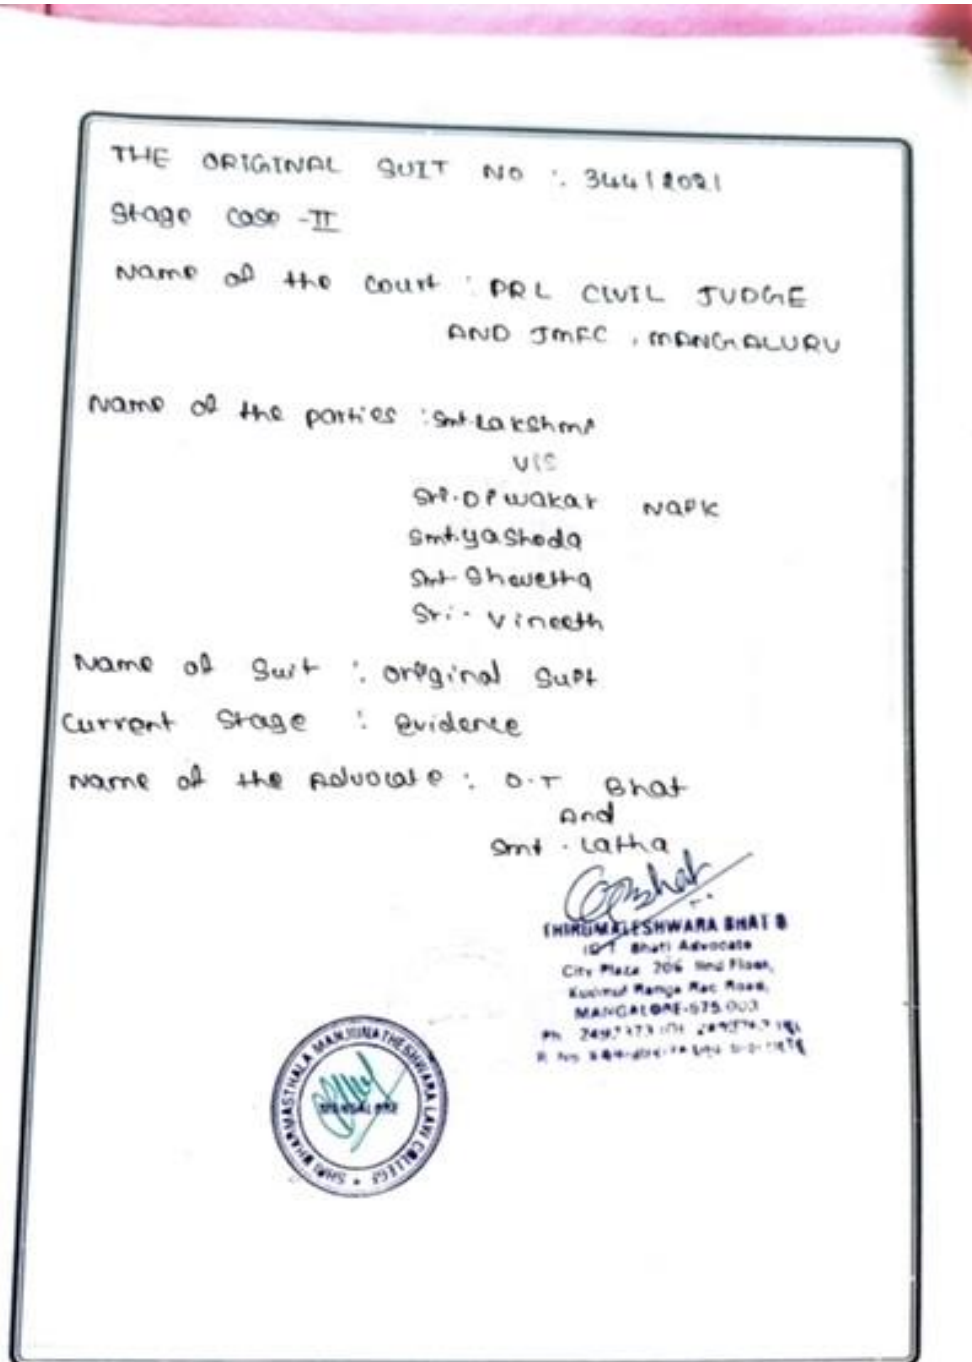 THE ORIGINAL SUIT NO : 344/2021
Stage case -II
Name of the court : PRL CIVIL JUDGE
AND JMFC , MANGALURU
Name of the parties : Smt.Lakshmi
V/S
Sri.Diwakar Naik
Smt.Yashoda
Smt.Shwetha
Sri. Vineeth
Name of Suit : original Suit
Current Stage : Evidence
Name of the Advocate : O.T Bhat
And
Smt . Latha
THIRUMALESHWARA BHAT
Bhat) Advocate
City Plaza 206 IInd Floor,
Kudmul Ranga Rao Road,
MANGALORE-575 003
Ph
SHRI DHARMASTHALA MANJUNATHESHWARA LAW COLLEGE
MANGALORE